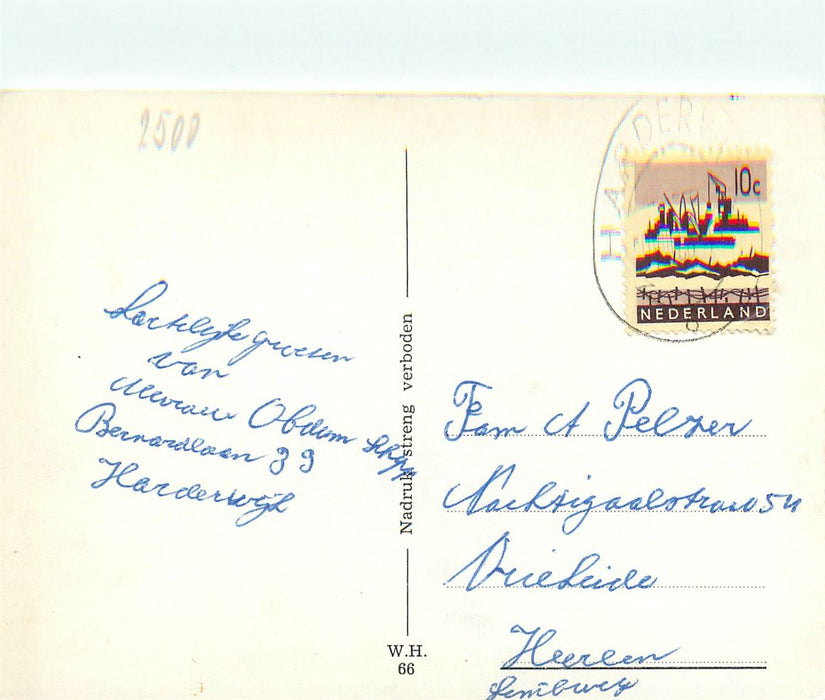 2500
HARDERW
10c
NEDERLAND
Hartelijke groeten
van
Mevrau Obdam
Bernardlaan 39
Harderwijk
Nadruk streng verboden
W.H.
66
Fam A Pelzer
Nachtigaalstraat 54
Vrieheide
Heerlen
Limburg